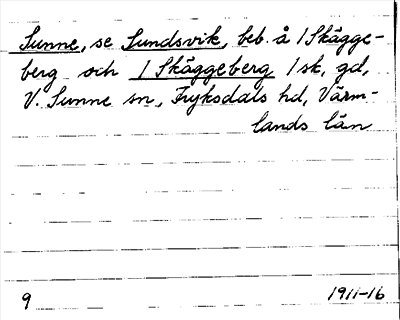 Sunne, se Sundsvik, beb. å 1 Skägge-
berg och 1 Skäggeberg 1 sk, gd,
V. Sunne sn, Fryksdals hd, Värm-
lands län
9 1911-16